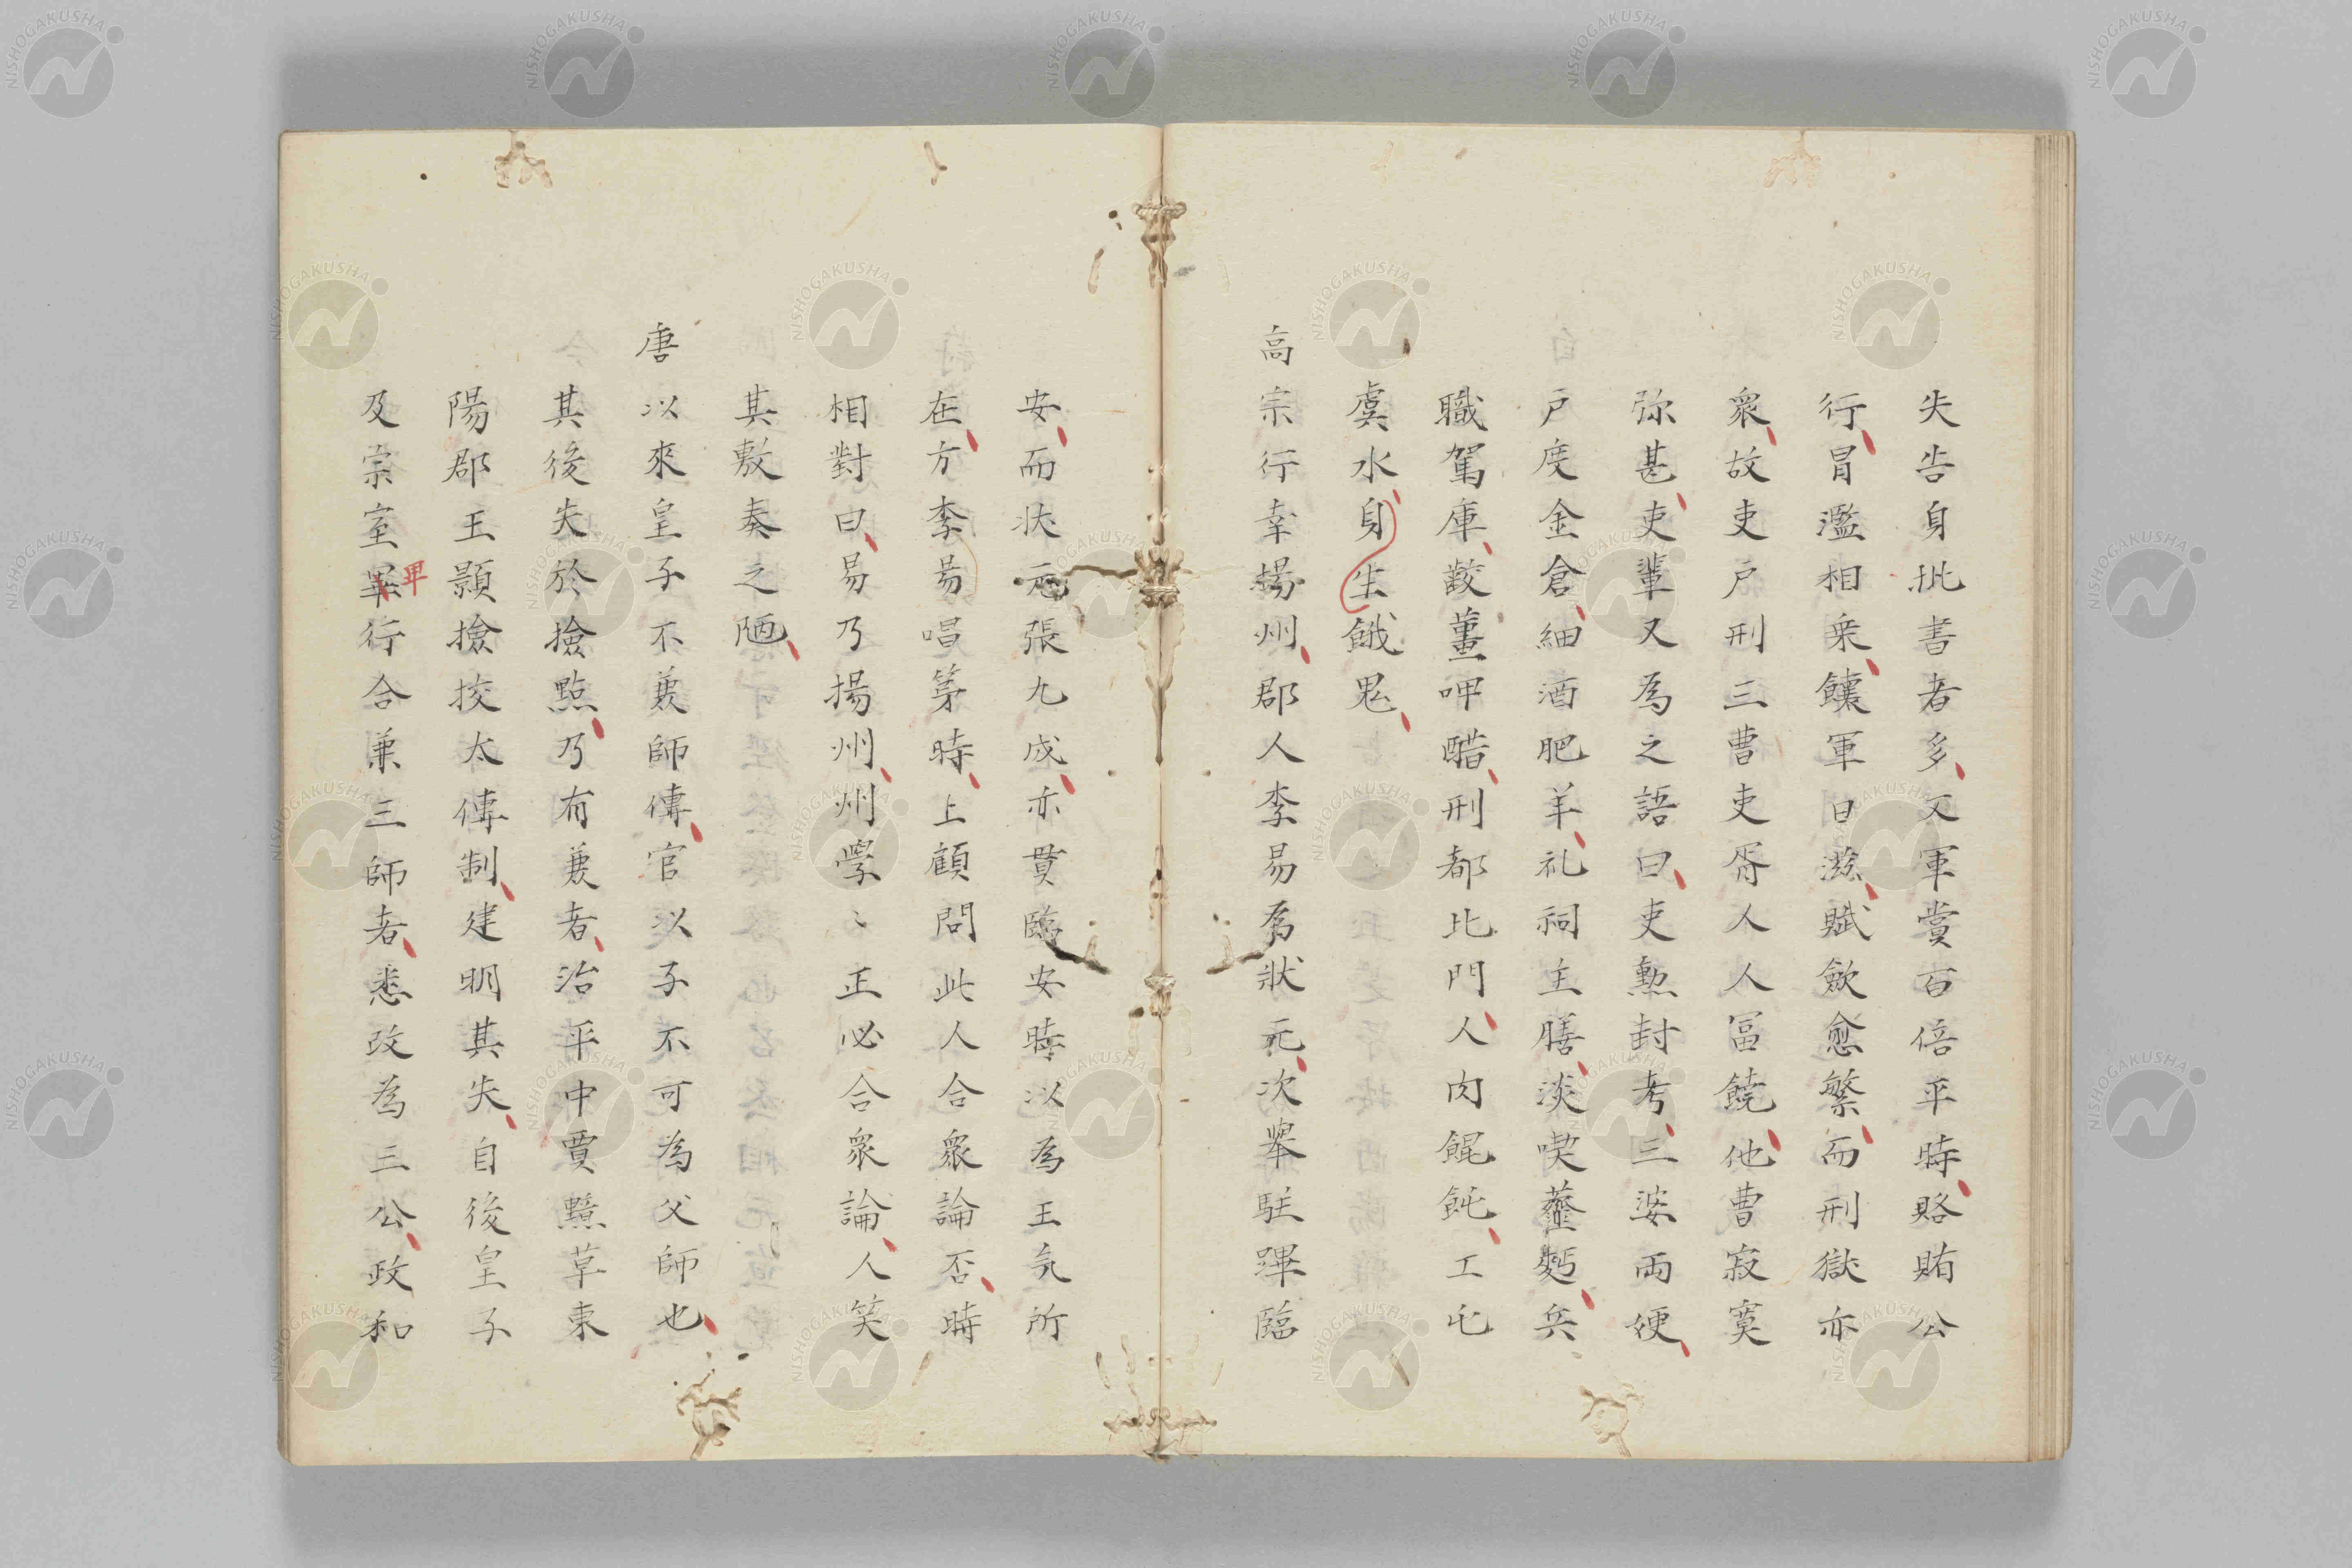 失告身批書者多又軍賞百倍平時賂賄公
行冒濫相乗饟軍日滋賦歛愈繁而刑獄亦
衆故吏戶刑三曹吏胥人人冨饒他曹寂寞
弥甚吏輩又為之語曰吏勲封考三婆両㛐
戶度金倉細酒肥羊礼祠主膳淡喫虀麪兵
職駕庫齩薑呷醋刑都比門人肉餛飩工屯
虞水身生餓鬼
高宗行幸揚州郡人李易為狀元次舉駐蹕臨
安而状元張九成亦貫臨安時以為王気所
在方李易唱第時上顧問此人合衆論否時
相對曰易乃揚州州學〻正必合衆論人笑
其敷奏之陋
唐以來皇子不兼師傅官以子不可為父師也
其後失於撿點乃有兼者治平中賈黯草東
陽郡王顥撿挍太傅制建明其失自後皇子
及宗室畢行合兼三師者悉改為三公政和
卑
NISHOGAKUSHA